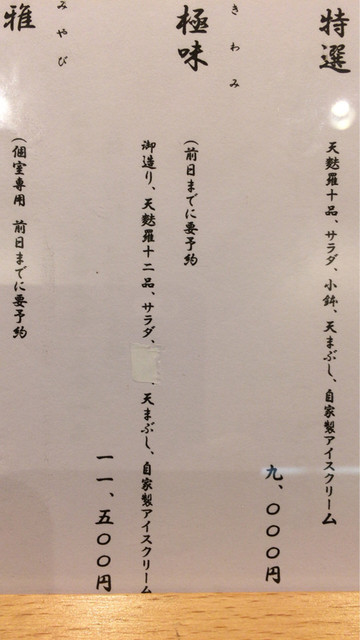 特選
天麩羅十品、サラダ、小鉢、天まぶし、自家製アイスクリーム
九、〇〇〇円
きわみ
極味
(前日までに要予約
御造り、天麩羅十二品、サラダ、、天まぶし、自家製アイスクリーム
一一、五〇〇円
みやび
雅
(個室専用 前日までに要予約